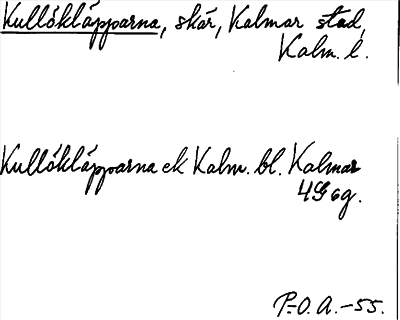 Kullöklåpparna, skär, Kalmar stad,
Kalm. l.
Kullöklåpparna ek Kalm. bl. Kalmar
4G 6g.
P.-O. A. -55.